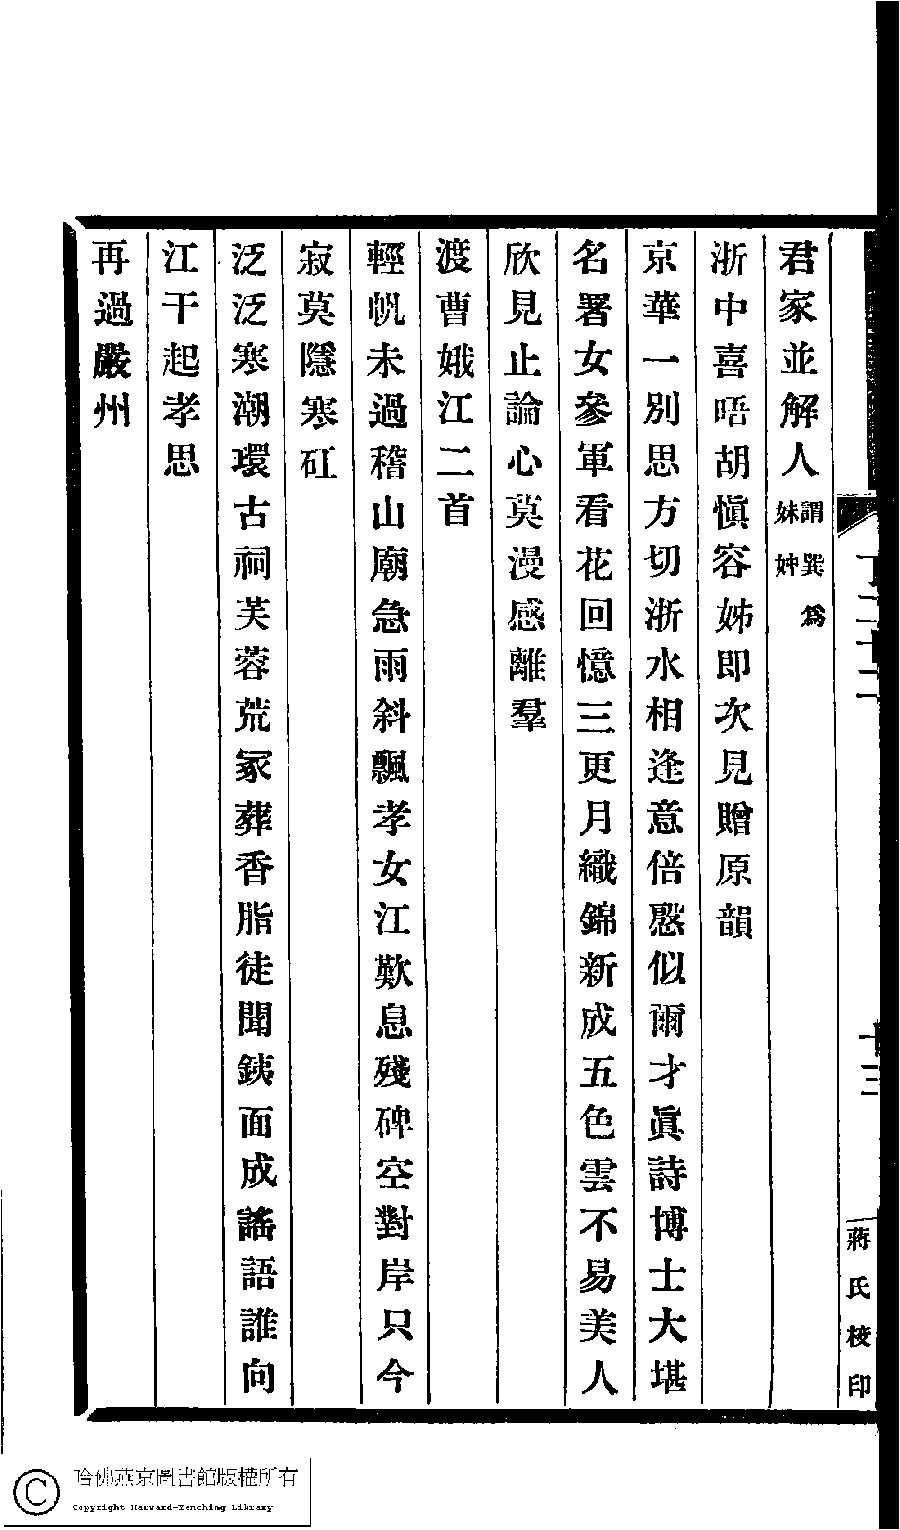 君家並解人謂巽爲妹妕
浙中喜晤胡愼容姊即次見贈原韻
京華一別思方切浙水相逢意倍慇似爾才眞詩博士大堪
名署女參軍看花回憶三更月織錦新成五色雲不易美人
欣見止論心莫漫感離羣
渡曹娥江二首
輕帆未過稽山廟急雨斜飄孝女江歎息殘碑空對岸只今
寂莫隱寒矼
泛泛寒潮環古祠芙蓉荒冢葬香脂徒聞銕面成謠語誰向
江干起孝思
再過嚴州
丁二十二
十三
蔣氏校印
哈佛燕京圖書館版權所有
Copyright Harvard-Yenching Library